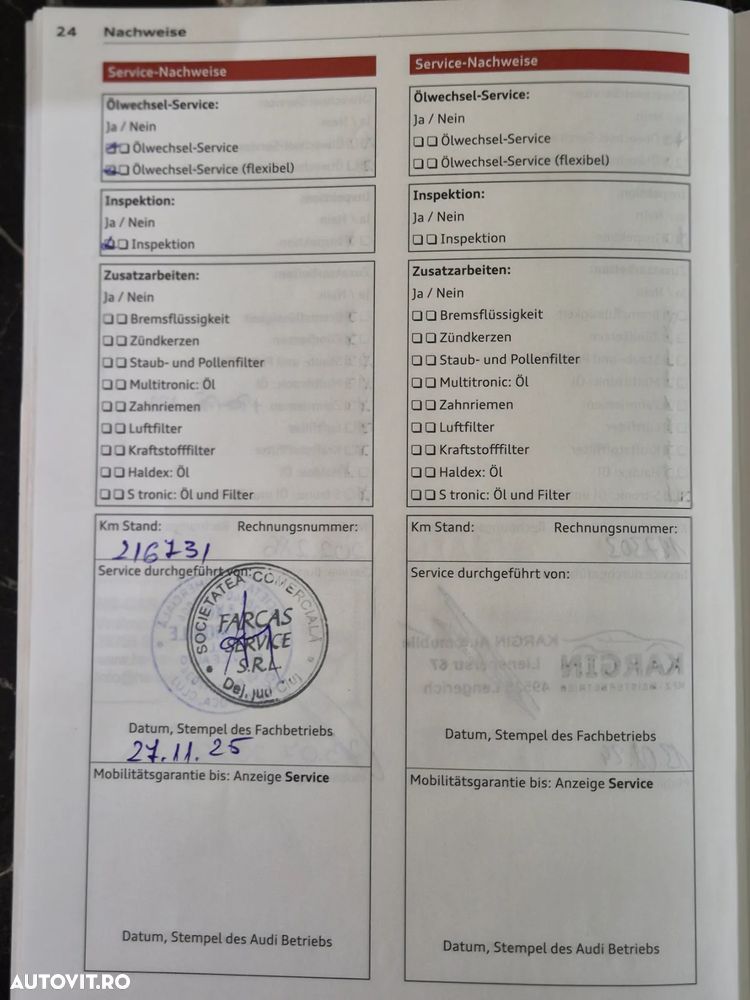 24 Nachweise
Service-Nachweise
Ölwechsel-Service:
Ja / Nein
Ölwechsel-Service
Ölwechsel-Service (flexibel)
Inspektion:
Ja / Nein
Inspektion
Zusatzarbeiten:
Ja / Nein
Bremsflüssigkeit
Zündkerzen
Staub- und Pollenfilter
Multitronic: Öl
Zahnriemen
Luftfilter
Kraftstofffilter
Haldex: Öl
S tronic: Öl und Filter
Km Stand: Rechnungsnummer:
216731
Service durchgeführt von:
SOCIETATEA COMERCIALĂ
FARCAS
SERVICE
S.R.L.
Dej, jud Cluj
Datum, Stempel des Fachbetriebs
27.11.25
Mobilitätsgarantie bis: Anzeige Service
Datum, Stempel des Audi Betriebs
Service-Nachweise
Ölwechsel-Service:
Ja / Nein
Ölwechsel-Service
Ölwechsel-Service (flexibel)
Inspektion:
Ja / Nein
Inspektion
Zusatzarbeiten:
Ja / Nein
Bremsflüssigkeit
Zündkerzen
Staub- und Pollenfilter
Multitronic: Öl
Zahnriemen
Luftfilter
Kraftstofffilter
Haldex: Öl
S tronic: Öl und Filter
Km Stand: Rechnungsnummer:
Service durchgeführt von:
KARGIN Automobile
KARGIN
Datum, Stempel des Fachbetriebs
Mobilitätsgarantie bis: Anzeige Service
Datum, Stempel des Audi Betriebs
AUTOVIT.RO